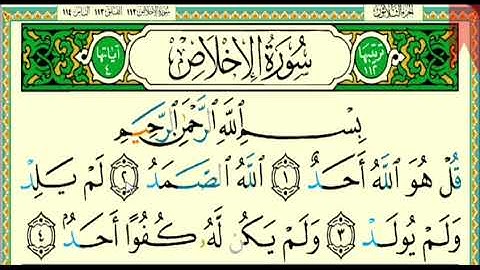 الجزء الثلاثون
سورة الإخلاص ١١٢ الفلق ١١٣ الناس ١١٤
ترتيبها ١١٢
سُورَةُ الإِخْلَاصِ
آياتها ٤
بِسْمِ ٱللَّهِ ٱلرَّحْمَٰنِ ٱلرَّحِيمِ
قُلْ هُوَ ٱللَّهُ أَحَدٌ ١ ٱللَّهُ ٱلصَّمَدُ ٢ لَمْ يَلِدْ
وَلَمْ يُولَدْ ٣ وَلَمْ يَكُن لَّهُۥ كُفُوًا أَحَدٌۢ ٤